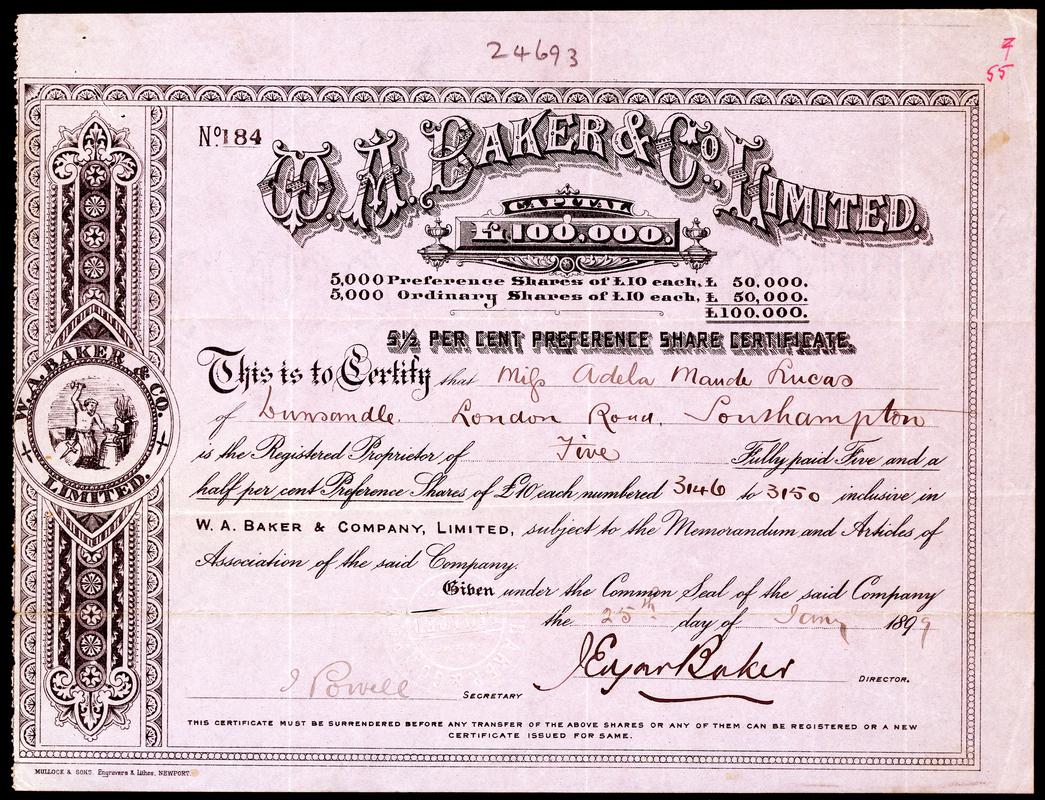 24693
7
55
No. 184
W. A. BAKER & Co., LIMITED.
CAPITAL
£100,000.
5,000 Preference Shares of £10 each, £ 50,000.
5,000 Ordinary Shares of £10 each, £ 50,000.
£100,000.
5½ PER CENT PREFERENCE SHARE CERTIFICATE.
This is to Certify that Miss Adela Maude Lucas
of Dunsandle. London Road, Southampton
is the Registered Proprietor of Five Fully paid Five and a
half per cent Preference Shares of £10 each numbered 3146 to 3150 inclusive in
W. A. BAKER & COMPANY, LIMITED, subject to the Memorandum and Articles of
Association of the said Company.
Given under the Common Seal of the said Company
the 25th day of Jany 1899
J Powell SECRETARY J Edgar Baker DIRECTOR.
THIS CERTIFICATE MUST BE SURRENDERED BEFORE ANY TRANSFER OF THE ABOVE SHARES OR ANY OF THEM CAN BE REGISTERED OR A NEW
CERTIFICATE ISSUED FOR SAME.
W. A. BAKER & CO.
LIMITED.
MULLOCK & SONS, Engravers & Lithos, NEWPORT.